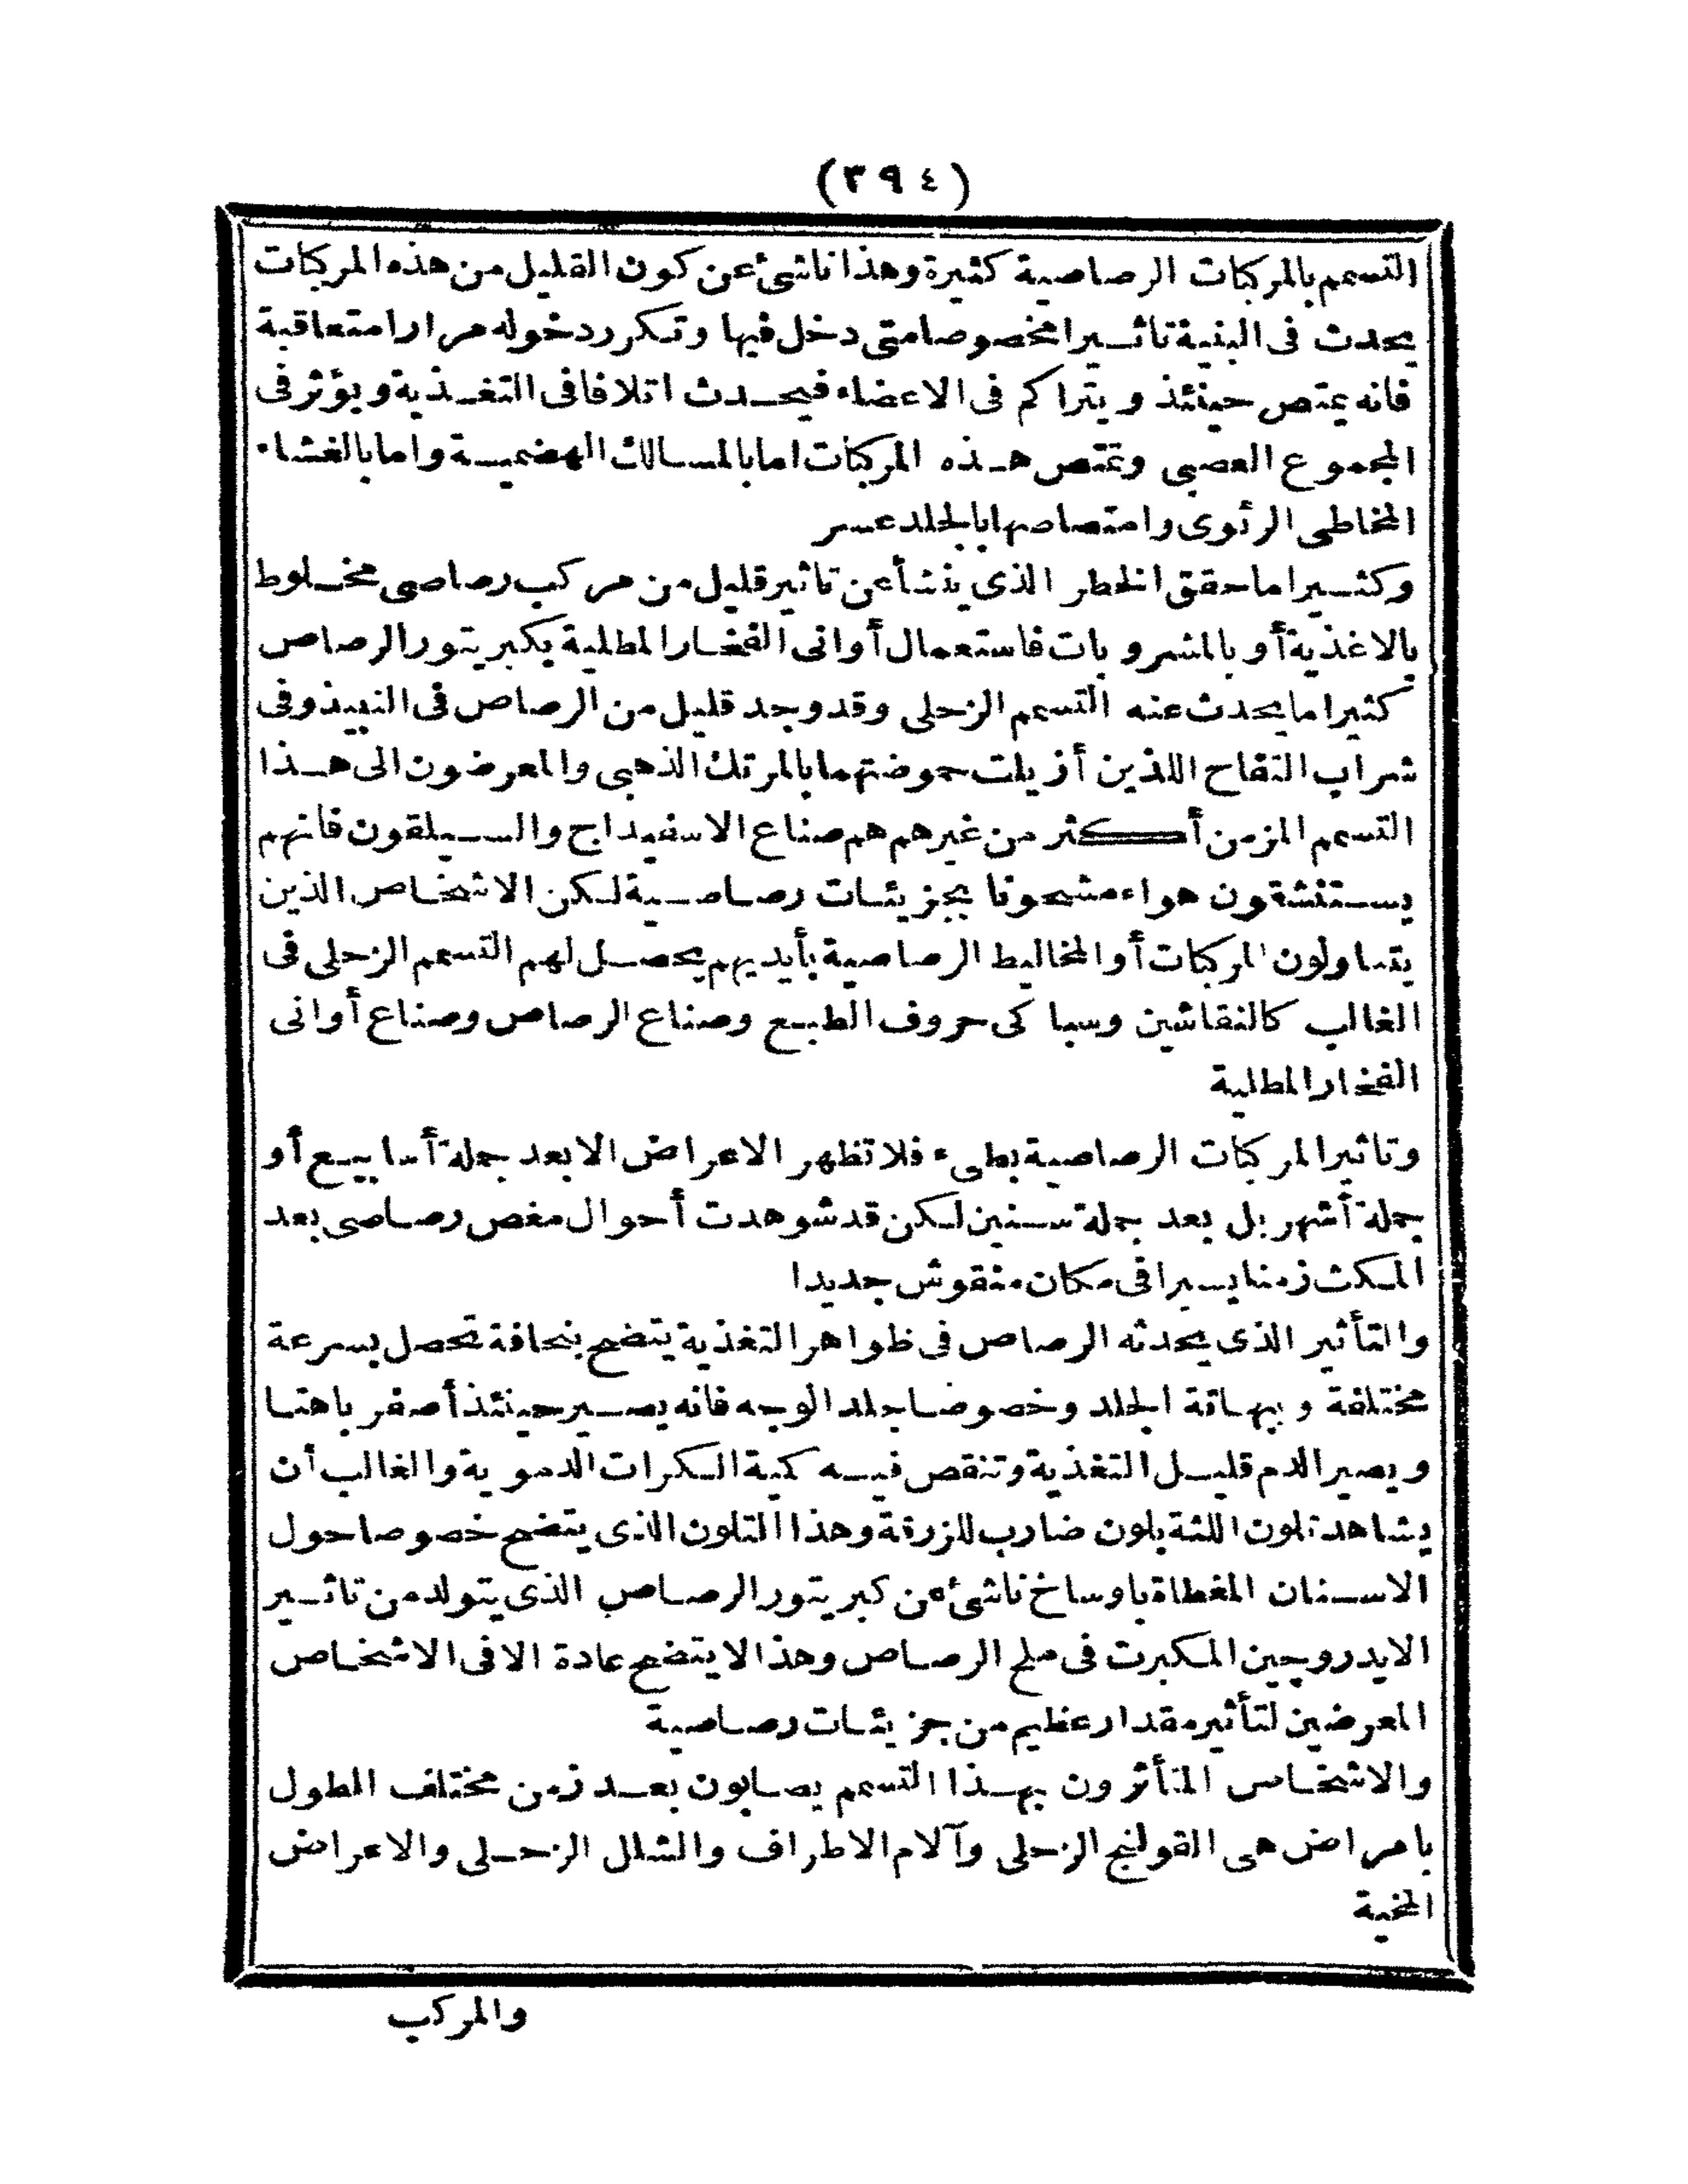 (٣٩٤)
التسمم بالمركبات الرصاصية كثيرة وهذا ناشئ عن كون القليل من هذه المركبات
يحدث فى البنية تاثيرا مخصوصا متى دخل فيها وتكرر دخوله مرارا متعاقبة
فانه يمتص حينئذ ويتراكم فى الاعضاء فيحدث اتلافا فى التغذية ويؤثر فى
المجموع العصبى وتمتص هذه المركبات اما بالمسالك الهضمية واما بالغشاء
المخاطى الرئوى وامتصاصها بالجلد عسر
وكثيرا ما حقق الخطر الذى ينشأ عن تاثير قليل من مركب رصاصى مخلوط
بالاغذية أو بالمشروبات فاستعمال أوانى الفخار المطلية بكبريتور الرصاص
كثيرا ما يحدث عنه التسمم الزحلى وقد وجد قليل من الرصاص فى النبيذ وفى
شراب التفاح اللذين أزيلت حموضتهما بالمرتك الذهبى والمعرضون الى هذا
التسمم المزمن أكثر من غيرهم هم صناع الاسفيداج والسيلقون فانهم
يستنشقون هواء مشحونا بجزيئات رصاصية لكن الاشخاص الذين
يتناولون المركبات أو المخاليط الرصاصية بأيديهم يحصل لهم التسمم الزحلى فى
الغالب كالنقاشين وسباكى حروف الطبع وصناع الرصاص وصناع أوانى
الفخار المطلية
وتاثير المركبات الرصاصية بطىء فلا تظهر الاعراض الا بعد جملة أسابيع أو
جملة أشهر بل بعد جملة سنين لكن قد شوهدت أحوال مغص رصاصى بعد
المكث زمنا يسيرا فى مكان منقوش جديدا
والتأثير الذى يحدثه الرصاص فى ظواهر التغذية يتضح بنحافة تحصل بسرعة
مختلفة وببهاتة الجلد وخصوصا جلد الوجه فانه يصير حينئذ أصفر باهتا
ويصير الدم قليل التغذية وتنقص فيه كمية الكرات الدموية والغالب أن
يشاهد تلون اللثة بلون ضارب للزرقة وهذا التلون الذى يتضح خصوصا حول
الاسنان المغطاة باوساخ ناشئ عن كبريتور الرصاص الذى يتولد من تاثير
الايدروچين المكبرت فى ملح الرصاص وهذا لا يتضح عادة الا فى الاشخاص
المعرضين لتأثير مقدار عظيم من جزيئات رصاصية
والاشخاص المتأثرون بهذا التسمم يصابون بعد زمن مختلف الطول
بامراض هى القولنج الزحلى وآلام الاطراف والشلل الزحلى والاعراض
المخية
والمركب